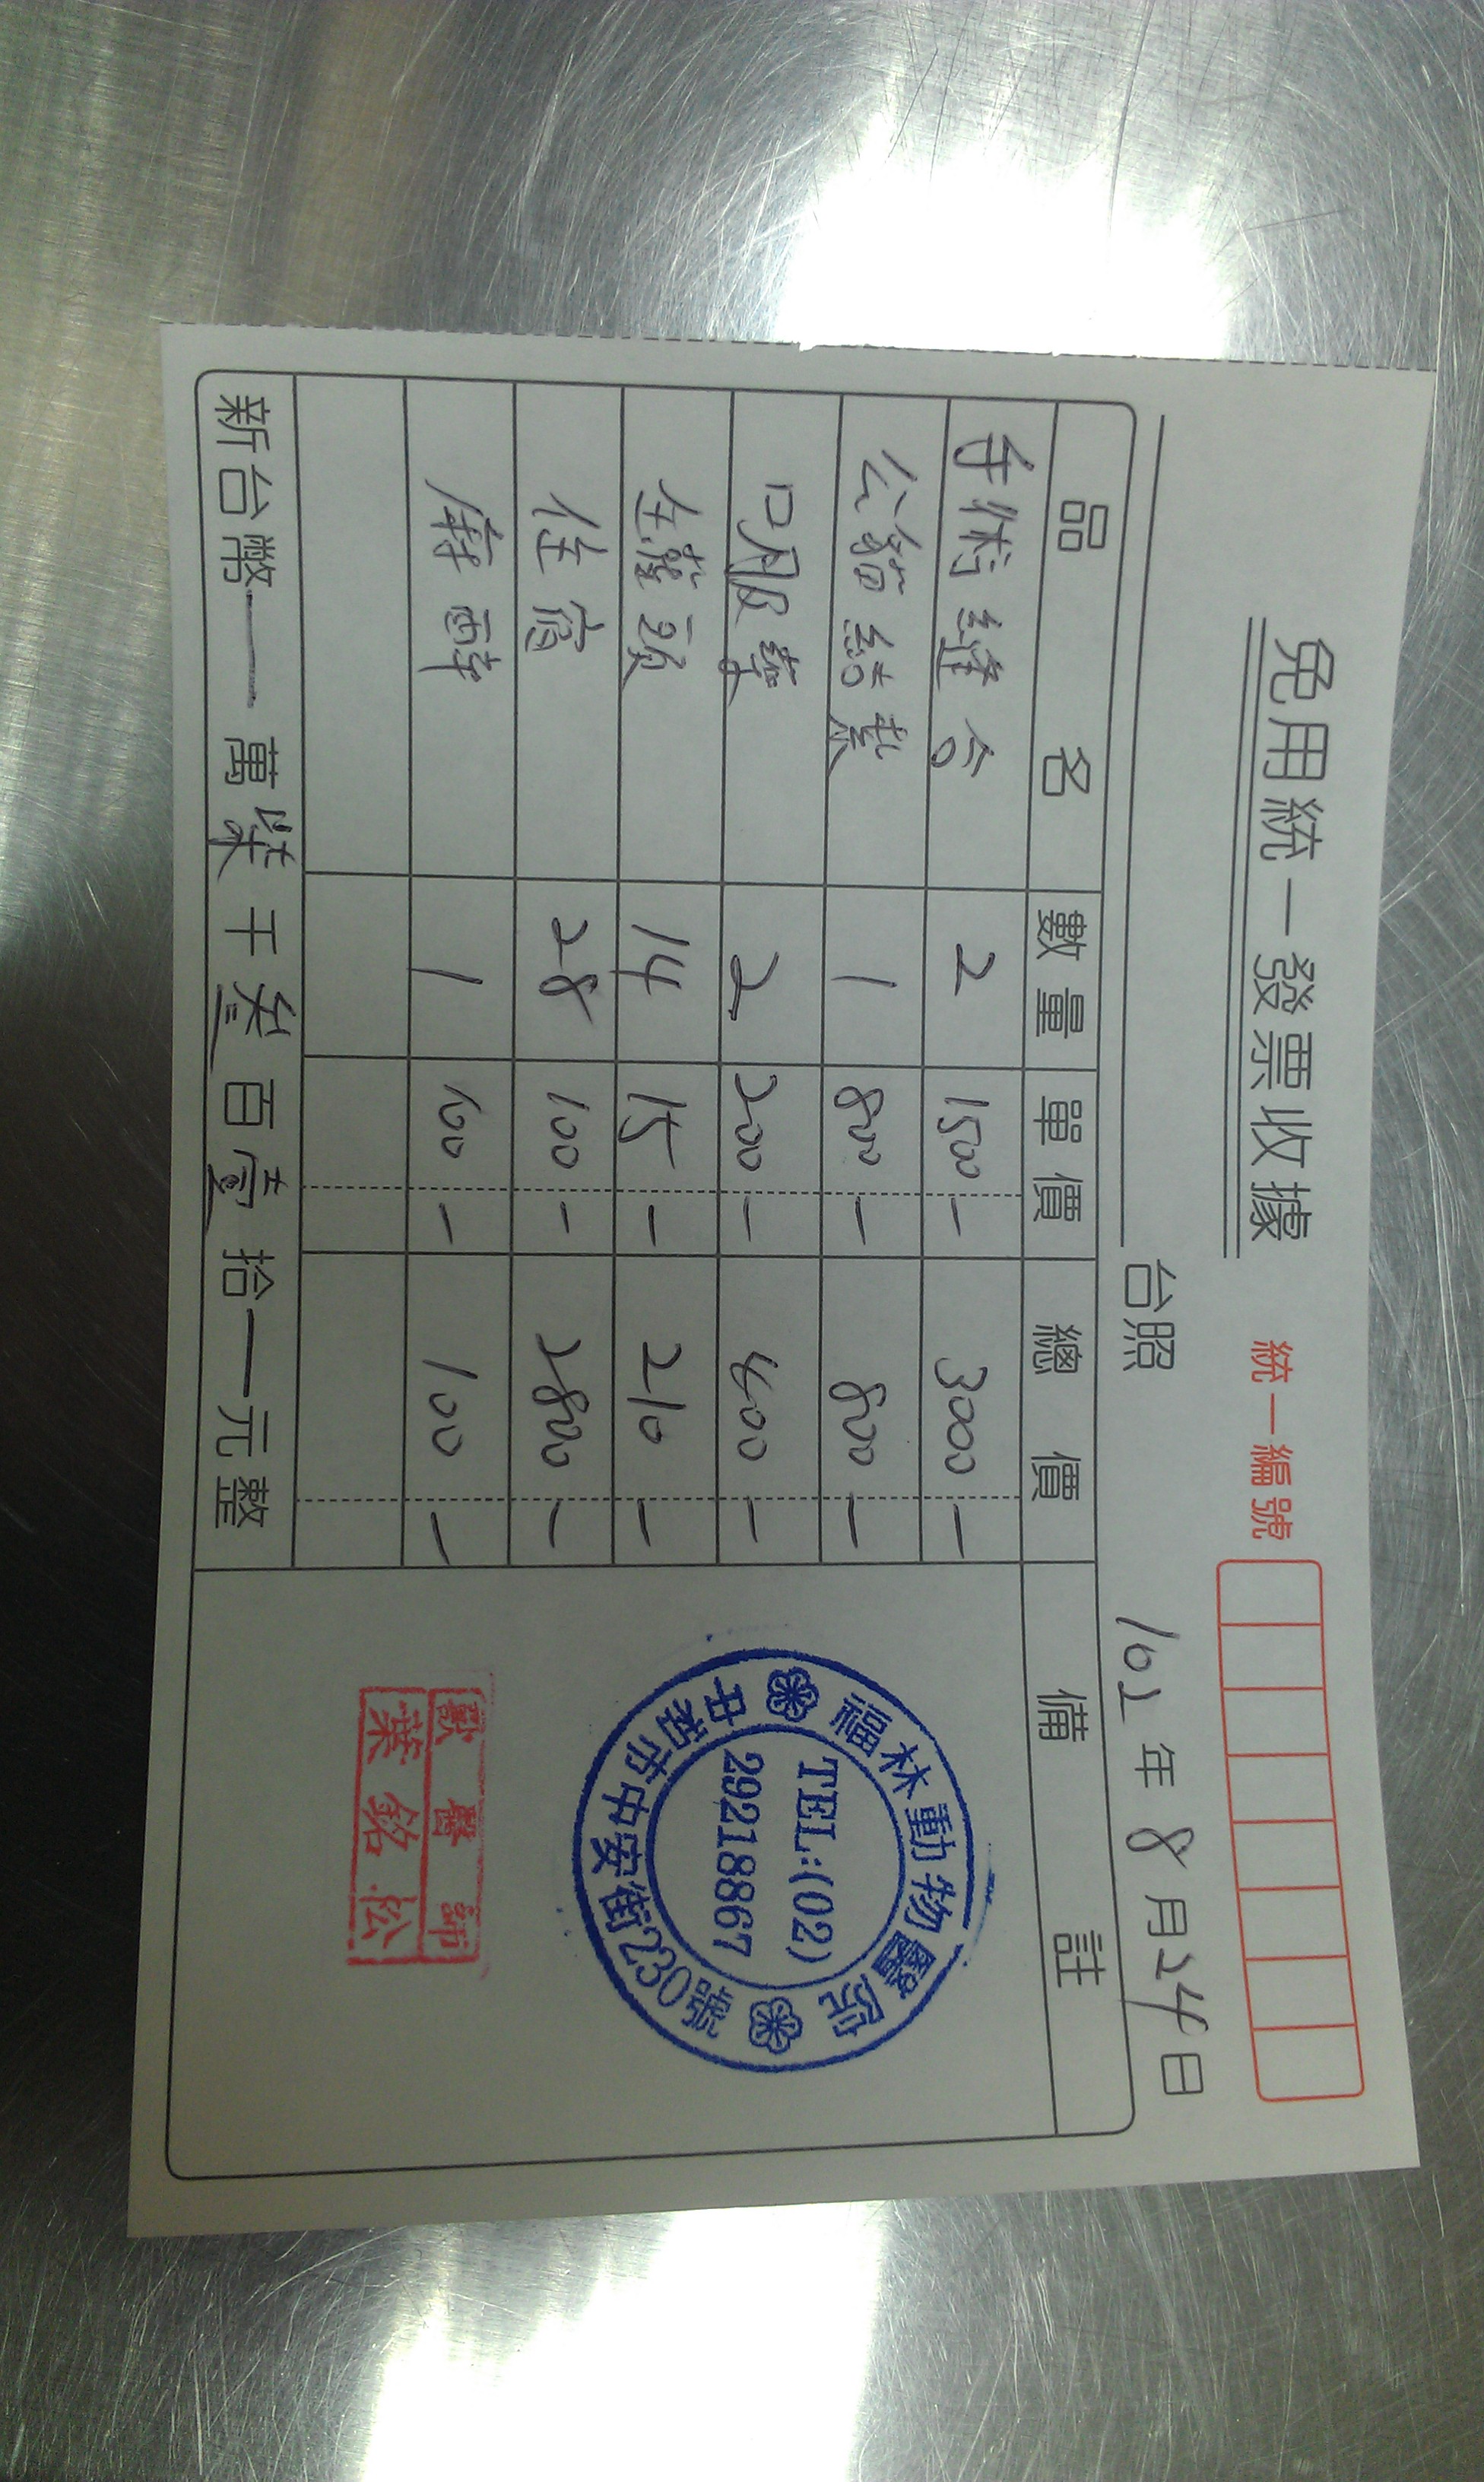 免用統一發票收據
統一編號
台照 102年8月24日
品名 數量 單價 總價 備註
手術縫合 2 1500- 3000-
公貓結紮 1 800- 800-
口服藥 2 200- 400-
14 15- 210-
住宿 28 100- 2800-
麻醉 1 100- 100-
新台幣—萬柒千叁百壹拾—元整
福林動物醫院
TEL:(02)
29218867
中和市中安街230號
獸醫師
葉銘